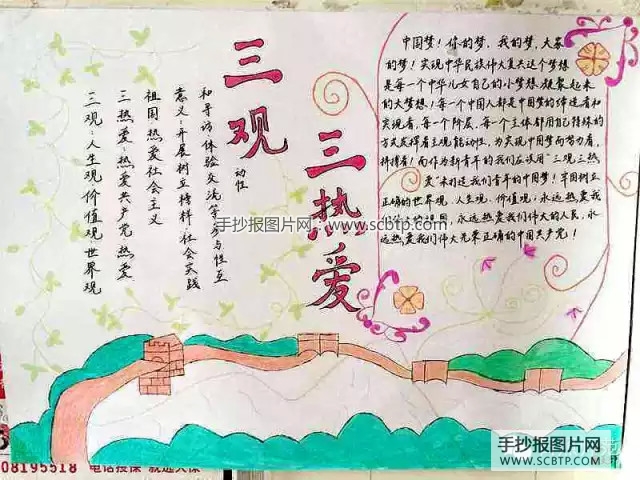 三观
三热爱
三观：人生观 价值观 世界观
三热爱：热爱共产党 热爱
祖国 热爱社会主义
意义：开展树立榜样 社会实践
和寻访 体验交流等参与性互
动性
中国梦！你的梦，我的梦，大家
的梦！实现中华民族伟大复兴这个梦想
是每一个中华儿女自己的小梦想凝聚起来
的大梦想！每一个中国人都是中国梦的缔造者和
实现者，每一个阶层，每一个主体都用自己特殊的
方式发挥着主观能动性，为实现中国梦而努力着，
拼搏着！而作为新青年的我们应该用“三观三热
爱”来打造我们青年的中国梦！牢固树立
正确的世界观，人生观，价值观，永远热爱我
们伟大的祖国，永远热爱我们伟大的人民，永
远热爱我们伟大光荣正确的中国共产党！
手抄报图片网
www.scbtp.com
手抄报图片网
WWW.SCBTP.COM
08195518 电话投保 就选人保